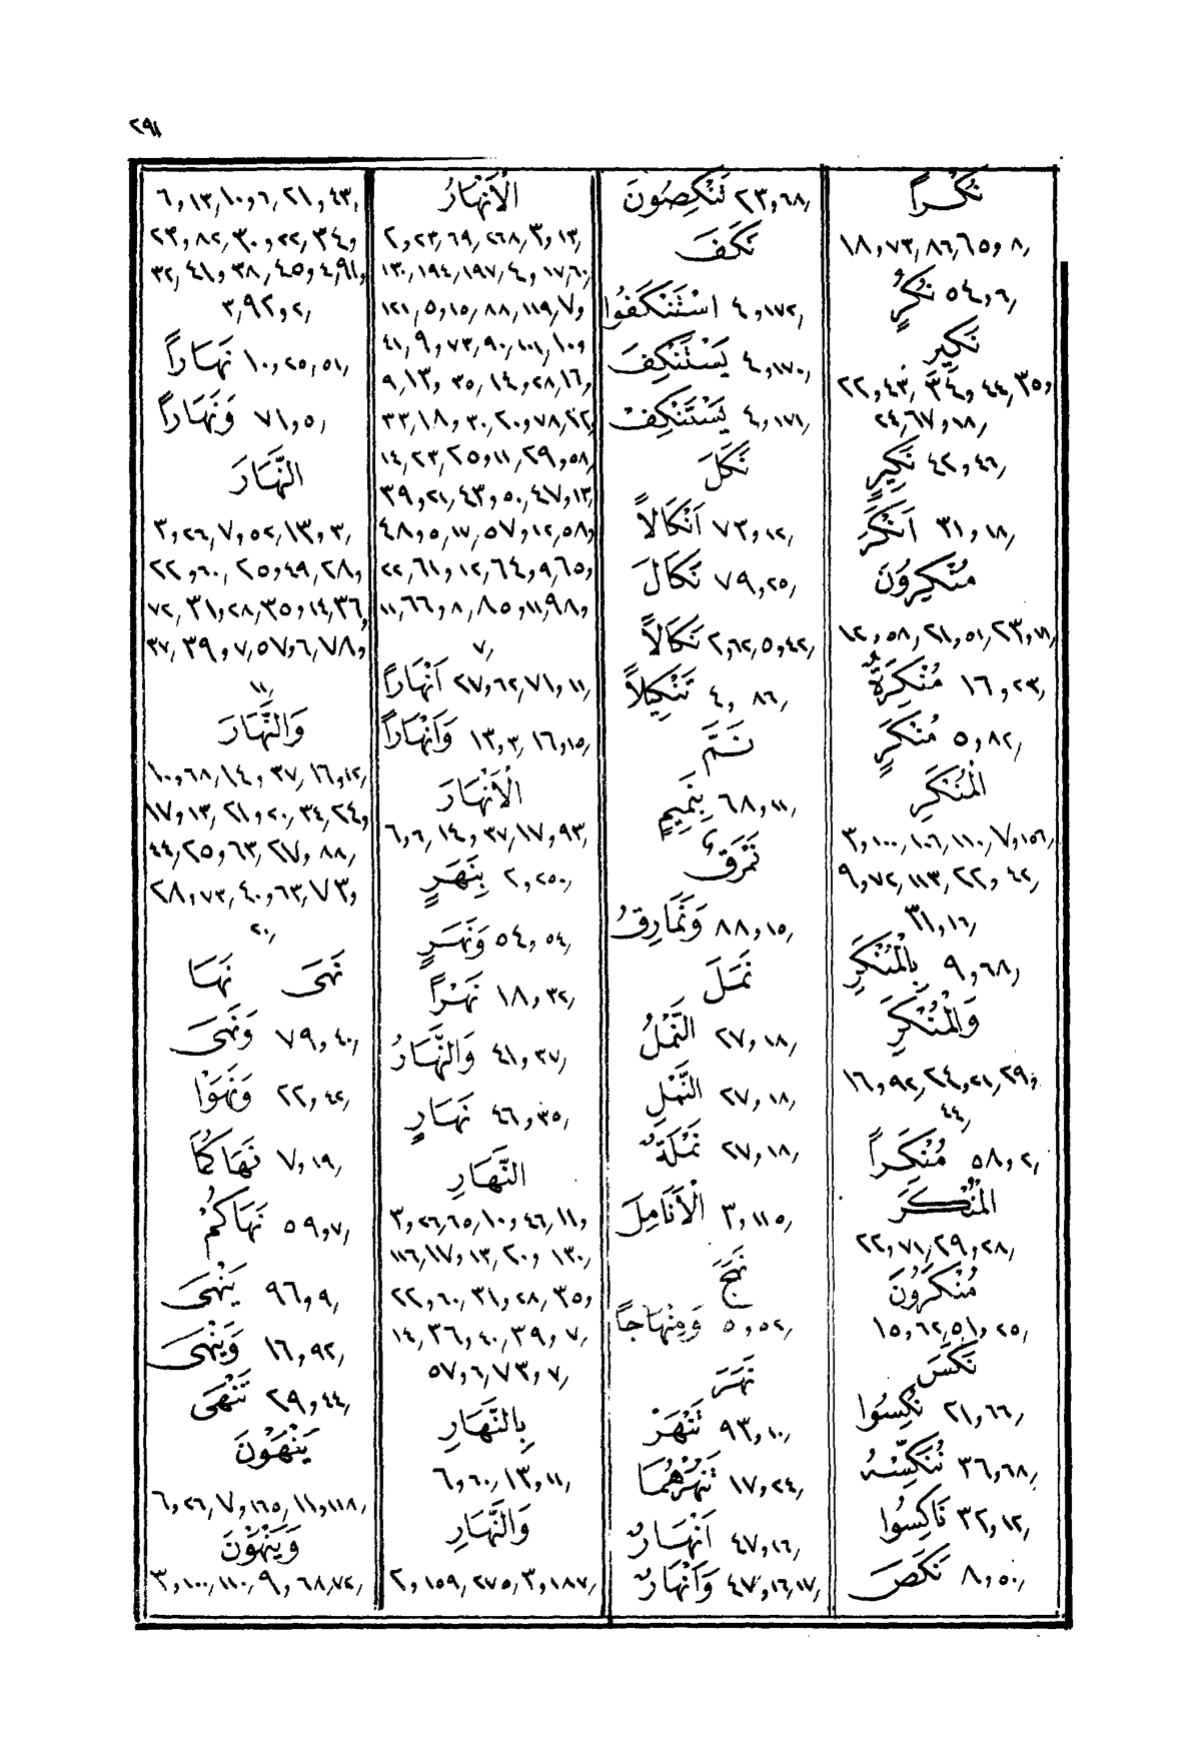 ٢٩١
نُكْراً
١٨,٧٣/٨٦/٦٥,٨/
نُكُرٍ ٥٤,٦/
نَكِيرِ
٢٢,٤٣/٣٤,٤٤/٣٥,
٢٤/٦٧,١٨/
نَكِيرٍ ٤٢,٤٦/
اَنْكَرَ ٣١,١٨/
مُنْكِرُونَ
١٢,٥٨/٢١,٥١/٢٣,٧١/
مُنْكِرَةٌ ١٦,٢٣/
مُنْكَرٍ ٥,٨٢/
الْمُنْكَرِ
٣,١٠٠/١٠٦/١١٠/٧,١٥٦/
٩,٧٢/١١٣/٢٢,٤٢/
٣١,١٦/
بِالْمُنْكَرِ ٩,٦٨/
وَالْمُنْكَرِ
١٦,٩٢/٢٤,٢١/٢٩,
٤٤/
مُنْكَراً ٥٨,٢/
الْمُنْكَرَ
٢٢,٧١/٢٩,٢٨/
مُنْكَرُونَ
١٥,٦٢/٥١,٢٥/
نَكَسَ
نُكِسُوا ٢١,٦٦/
نُنَكِّسْهُ ٣٦,٦٨/
نَاكِسُوا ٣٢,١٢/
نَكَصَ ٨,٥٠/
تَنْكِصُونَ ٢٣,٦٨/
نَكَفَ
اسْتَنْكَفُوا ٤,١٧٢/
يَسْتَنْكِفَ ٤,١٧٠/
يَسْتَنْكِفْ ٤,١٧١/
نَكَلَ
اَنْكَالاً ٧٣,١٢/
نَكَالَ ٧٩,٢٥/
نَكَالاً ٢,٦٢/٥,٤٢/
تَنْكِيلاً ٤,٨٦/
نَمَّ
بِنَمِيمٍ ٦٨,١١/
نُمْرُقٌ
وَنَمَارِقُ ٨٨,١٥/
نَمَلَ
النَّمْلُ ٢٧,١٨/
النَّمْلِ ٢٧,١٨/
نَمْلَةٌ ٢٧,١٨/
الْأَنَامِلَ ٣,١١٥/
نَهَجَ
وَمِنْهَاجاً ٥,٥٢/
نَهَرَ
تَنْهَرْ ٩٣,١٠/
تَنْهَرْهُمَا ١٧,٢٤/
اَنْهَارٌ ٤٧,١٦/
وَاَنْهَارٌ ٤٧,١٦/١٧/
الْاَنْهَارُ
٢,٢٣/٦٩/٢٦٨/٣,١٣/
١٣٠/١٩٤/١٩٧/٤,١٧/٦٠/
١٢١/٥,١٥/٨٨/١١٩/٧,
٤١/٩,٧٣/٩٠/١٠١/١٠,
٩/١٣,٣٥/١٤,٢٨/١٦,
٣٣/١٨,٣٠/٢٠,٧٨/٢٢,
١٤/٢٣/٢٥,١١/٢٩,٥٨/
٣٩,٢١/٤٣,٥٠/٤٧,١٣/
٤٨,٥/١٧/٥٧,١٢/٥٨,
٢٢/٦١,١٢/٦٤,٩/٦٥,
١١/٦٦,٨/٨٥,١١/٩٨,
٧/
اَنْهَاراً ٢٧,٦٢/٧١,١١/
وَاَنْهَاراً ١٣,٣/١٦,١٥/
الْاَنْهَارَ
٦,٦/١٤,٣٧/١٧,٩٣/
بِنَهَرٍ ٢,٢٥٠/
وَنَهَرٍ ٥٤,٥٤/
نَهْراً ١٨,٣٢/
وَالنَّهَارُ ٤١,٣٧/
نَهَارٍ ٤٦,٣٥/
النَّهَارِ
٣,٢٦/٦٥/١٠,٤٦/١١,
١١٦/١٧,١٣/٢٠,١٣٠/
٢٢,٦٠/٣١,٢٨/٣٥,
١٤/٣٦,٤٠/٣٩,٧/
٥٧,٦/٧٣,٧/
بِالنَّهَارِ
٦,٦٠/١٣,١١/
وَالنَّهَارِ
٢,١٥٩/٢٧٥/٣,١٨٧/
٦,١٣/١٠,٦/٢١,٤٣/
٢٣,٨٢/٣٠,٢٢/٣٤,
٣٢/٤١,٣٨/٤٥,٤/٩١,
٣/٩٢,٢/
نَهَاراً ١٠,٢٥,٥١/
وَنَهَاراً ٧١,٥/
النَّهَارَ
٣,٢٦/٧,٥٢/١٣,٣/
٢٢,٦٠/٢٥,٤٩/٢٨,
٧٢/٣١,٢٨/٣٥,١٤/٣٦,
٣٧/٣٩,٧/٥٧,٦/٧٨,
١١/
وَالنَّهَارَ
١٠,٦٨/١٤,٣٧/١٦,١٢/
١٧,١٣/٢١,٢٠/٣٤/٢٤,
٤٤/٢٥,٦٣/٢٧,٨٨/
٢٨,٧٣/٤٠,٦٣/٧٣,
٢٠/
نَهَى نَهَا
وَنَهَى ٧٩,٤٠/
وَنَهَوْا ٢٢,٤٢/
نَهَاكُمَا ٧,١٩/
نَهَاكُمْ ٥٩,٧/
يَنْهَى ٩٦,٩/
وَيَنْهَى ١٦,٩٢/
تَنْهَى ٢٩,٤٤/
يَنْهَوْنَ
٦,٢٦/٧,١٦٥/١١,١١٨/
وَيَنْهَوْنَ
٣,١٠٠/١١٠/٩,٦٨/٧٢/